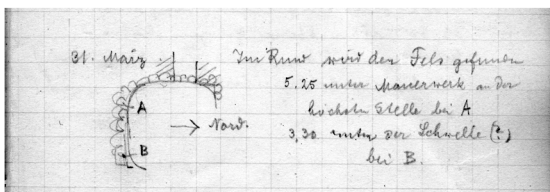 31. März
Im Rund wird der Fels gefunden
5,25 unter Mauerwerk an der
höchsten Stelle bei A
3,30 unter der Schwelle (?)
bei B.
A
→ Nord.
B